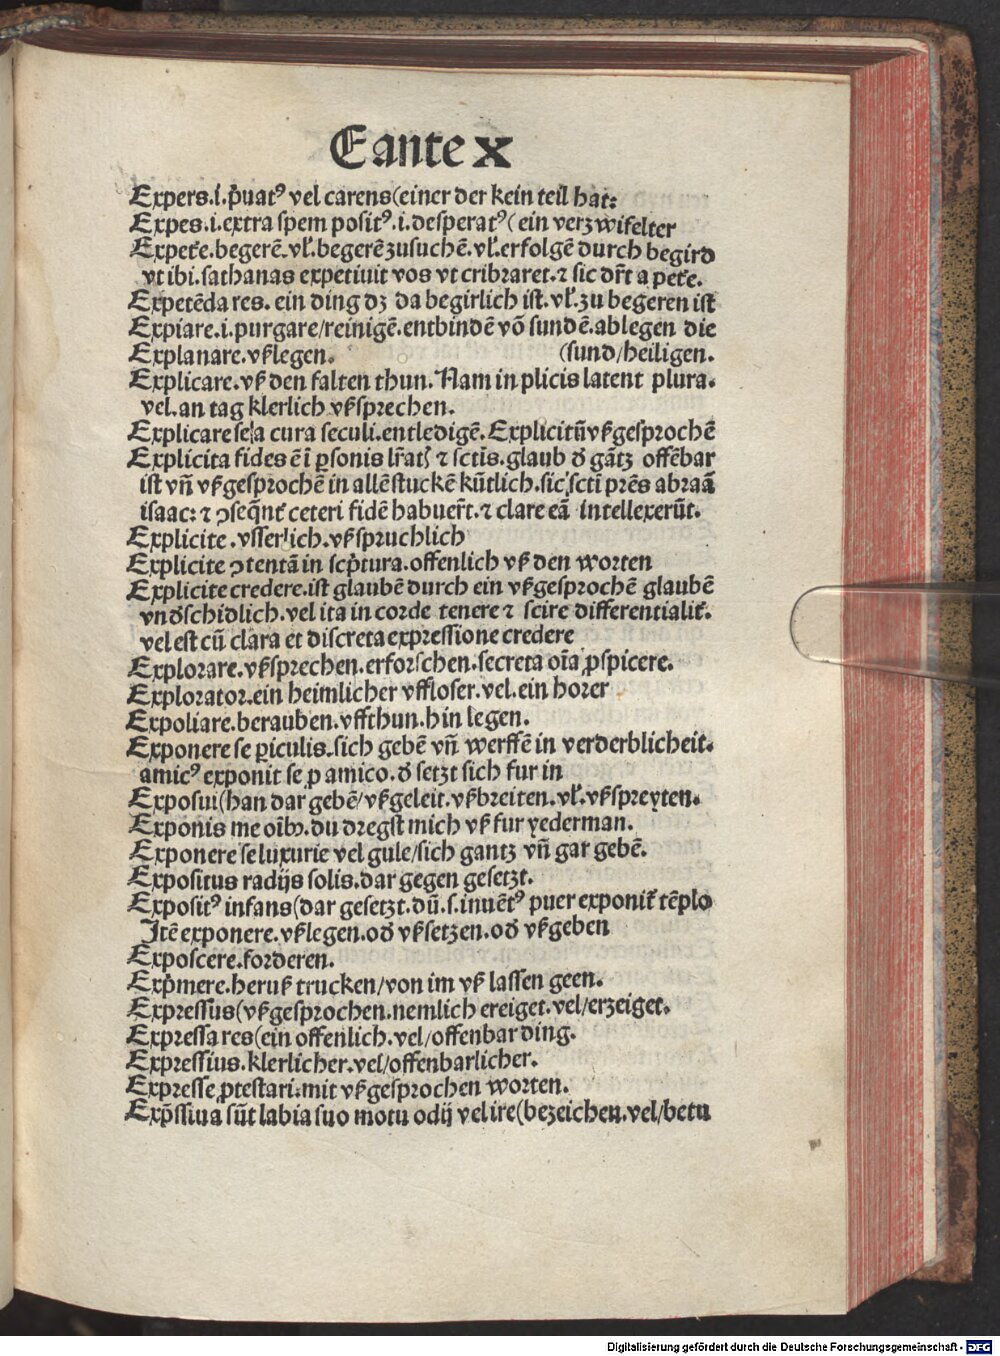 E ante x
Expers.i.p̄uatꝰ vel carens(einer der kein teil hat:
Expes.i.extra spem positꝰ.i.desperatꝰ( ein verzwifelter
Expeťe.begerē.vľ.begerē zusuchē.vľ.erfolgē durch begird
vt ibi.sathanas expetiuit vos vt cribraret.⁊ sic dr̄t a peťe.
Expetēda res. ein ding dz da begirlich ist.vľ.zu begeren ist
Expiare.i.purgare/reinigē.entbindē vō sundē.ablegen die
Explanare.vßlegen. (sund/heiligen.
Explicare.vß den falten thun.Nam in plicis latent plura.
vel.an tag klerlich vßsprechen.
Explicare se/a cura seculi.entledigē.Explicitū vßgesprochē
Explicita fides ē ī ꝑsonis lr̄atꝭ ⁊ sctis.glaub ď gātz offēbar
ist vn̄ vßgesprochē in allē stuckē kūtlich.sic scti prēs abraā
isaac: ⁊ ꝯseq̄nť ceteri fidē habuer̄t.⁊ clare eā intellexerūt.
Explicite.vsserlich.vßspruchlich
Explicite ꝯtentā in scp̄tura.offenlich vß den worten
Explicite credere.ist glaubē durch ein vßgesprochē glaubē
vnďschidlich.vel ita in corde tenere ⁊ scire differentialiť.
vel est cū clara et discreta expressione credere
Explorare.vßsprechen.erforschen.secreta oīa ꝓspicere.
Explorator.ein heimlicher vffloser.vel.ein horer
Expoliare.berauben.vffthun.hin legen.
Exponere se ꝑiculis.sich gebē vn̄ werffē in verderblicheit.
amicꝰ exponit se ꝓ amico.ď setzt sich fur in
Exposui(han dar gebē/vßgeleit.vßbreiten.vľ.vßspreyten.
Exponis me oībꝰ.du dregst mich vß fur yederman.
Exponere se luxurie vel gule/sich gantz vn̄ gar gebē.
Expositus radijs solis.dar gegen gesetzt.
Expositꝰ infans(dar gesetzt.dū.s.inuētꝰ puer exponiť tēplo
Itē exponere.vßlegen.oď vßsetzen.oď vßgeben
Exposcere.forderen.
Exp̄mere.heruß trucken/von im vß lassen geen.
Expressus(vßgesprochen.nemlich ereiget.vel/erzeiget.
Expressa res(ein offenlich.vel/offenbar ding.
Expressius.klerlicher.vel/offenbarlicher.
Expresse ꝓtestari:mit vßgesprochen worten.
Exp̄ssiua sūt labia suo motu odij vel ire(bezeichen.vel/betu
Digitalisierung gefördert durch die Deutsche Forschungsgemeinschaft - DFG